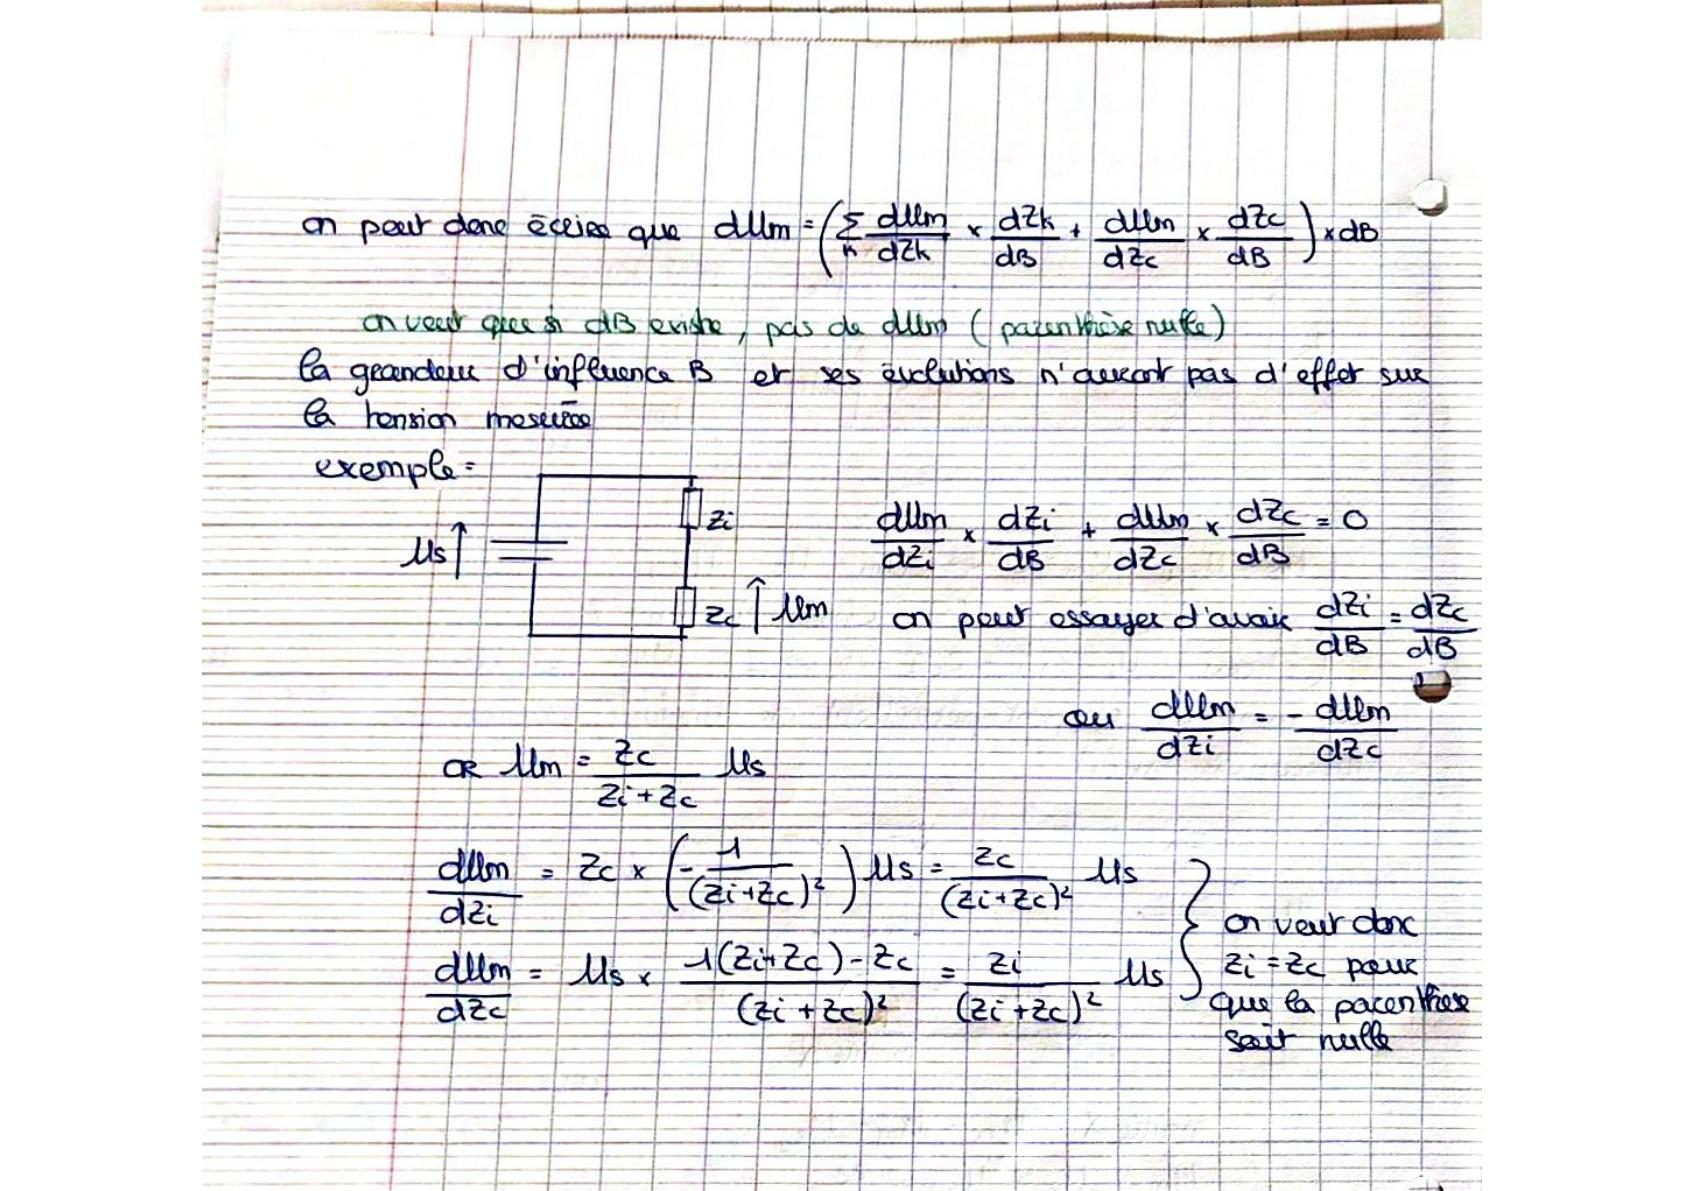 on peut donc écrire que dUm = (Σ_k dUm/dZk × dZk/dB + dUm/dZc × dZc/dB) × dB
on veut que si dB existe, pas de dUm (parenthèse nulle)
la grandeur d'influence B et ses évolutions n'auront pas d'effet sur
la tension mesurée
exemple:
Us Zi Zc Um
dUm/dZi × dZi/dB + dUm/dZc × dZc/dB = 0
on peut essayer d'avoir dZi/dB = dZc/dB
ou dUm/dZi = - dUm/dZc
OR Um = Zc/(Zi+Zc) Us
dUm/dZi = Zc × (-1/(Zi+Zc)²) Us = Zc/(Zi+Zc)² Us
dUm/dZc = Us × (1(Zi+Zc)-Zc)/(Zi+Zc)² = Zi/(Zi+Zc)² Us
on veut donc
Zi = Zc pour
que la parenthèse
soit nulle